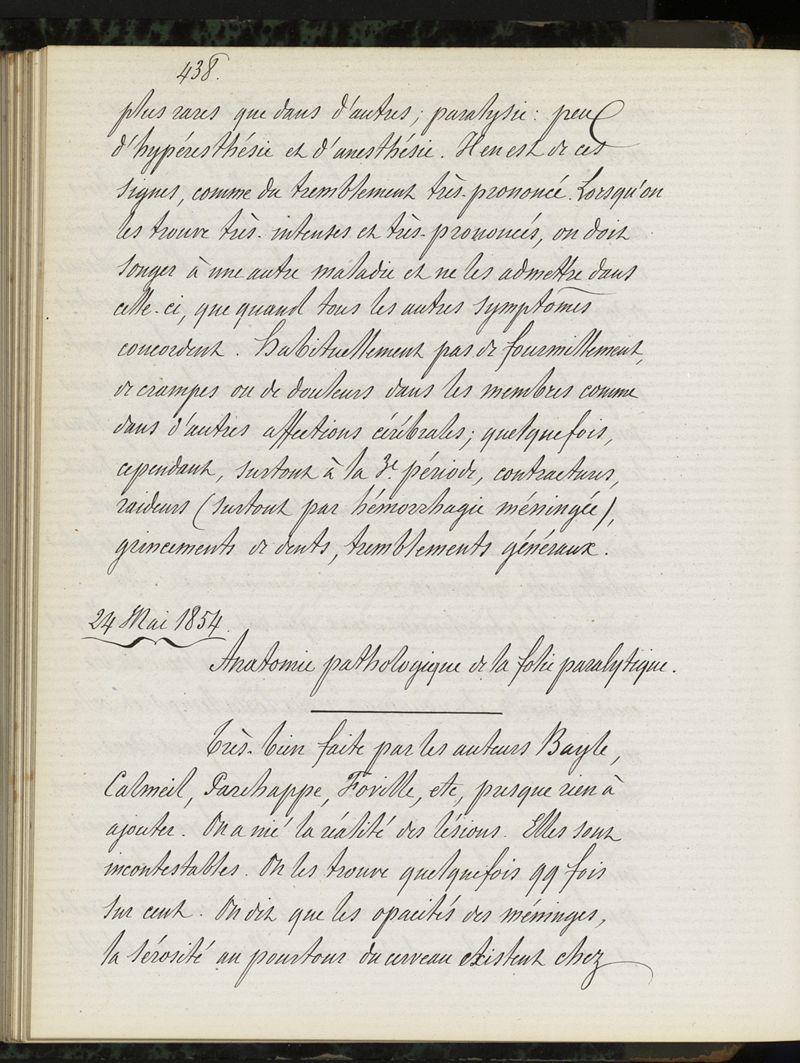 438.
plus rares que dans d'autres; paralysie: peu
d'hypéresthésie et d'anesthésie. Il en est de ces
signes, comme du tremblement très-prononcé. Lorsqu'on
les trouve très-intenses et très-prononcés, on doit
songer à une autre maladie et ne les admettre dans
celle-ci, que quand tous les autres symptômes
concordent. Habituellement pas de fourmillement,
de crampes ou de douleurs dans les membres comme
dans d'autres affections cérébrales; quelquefois,
cependant, surtout à la 3e. période, contractures,
raideurs (surtout par hémorrhagie méningée),
grincements de dents, tremblements généraux.
24 Mai 1854.
Anatomie pathologique de la folie paralytique.
Très-bien faite par les auteurs Bayle,
Calmeil, Parchappe, Foville, etc, presque rien à
ajouter. On a nié la réalité des lésions. Elles sont
incontestables. On les trouve quelquefois 99 fois
sur cent. On dit que les opacités des méninges,
la sérosité au pourtour du cerveau existent chez